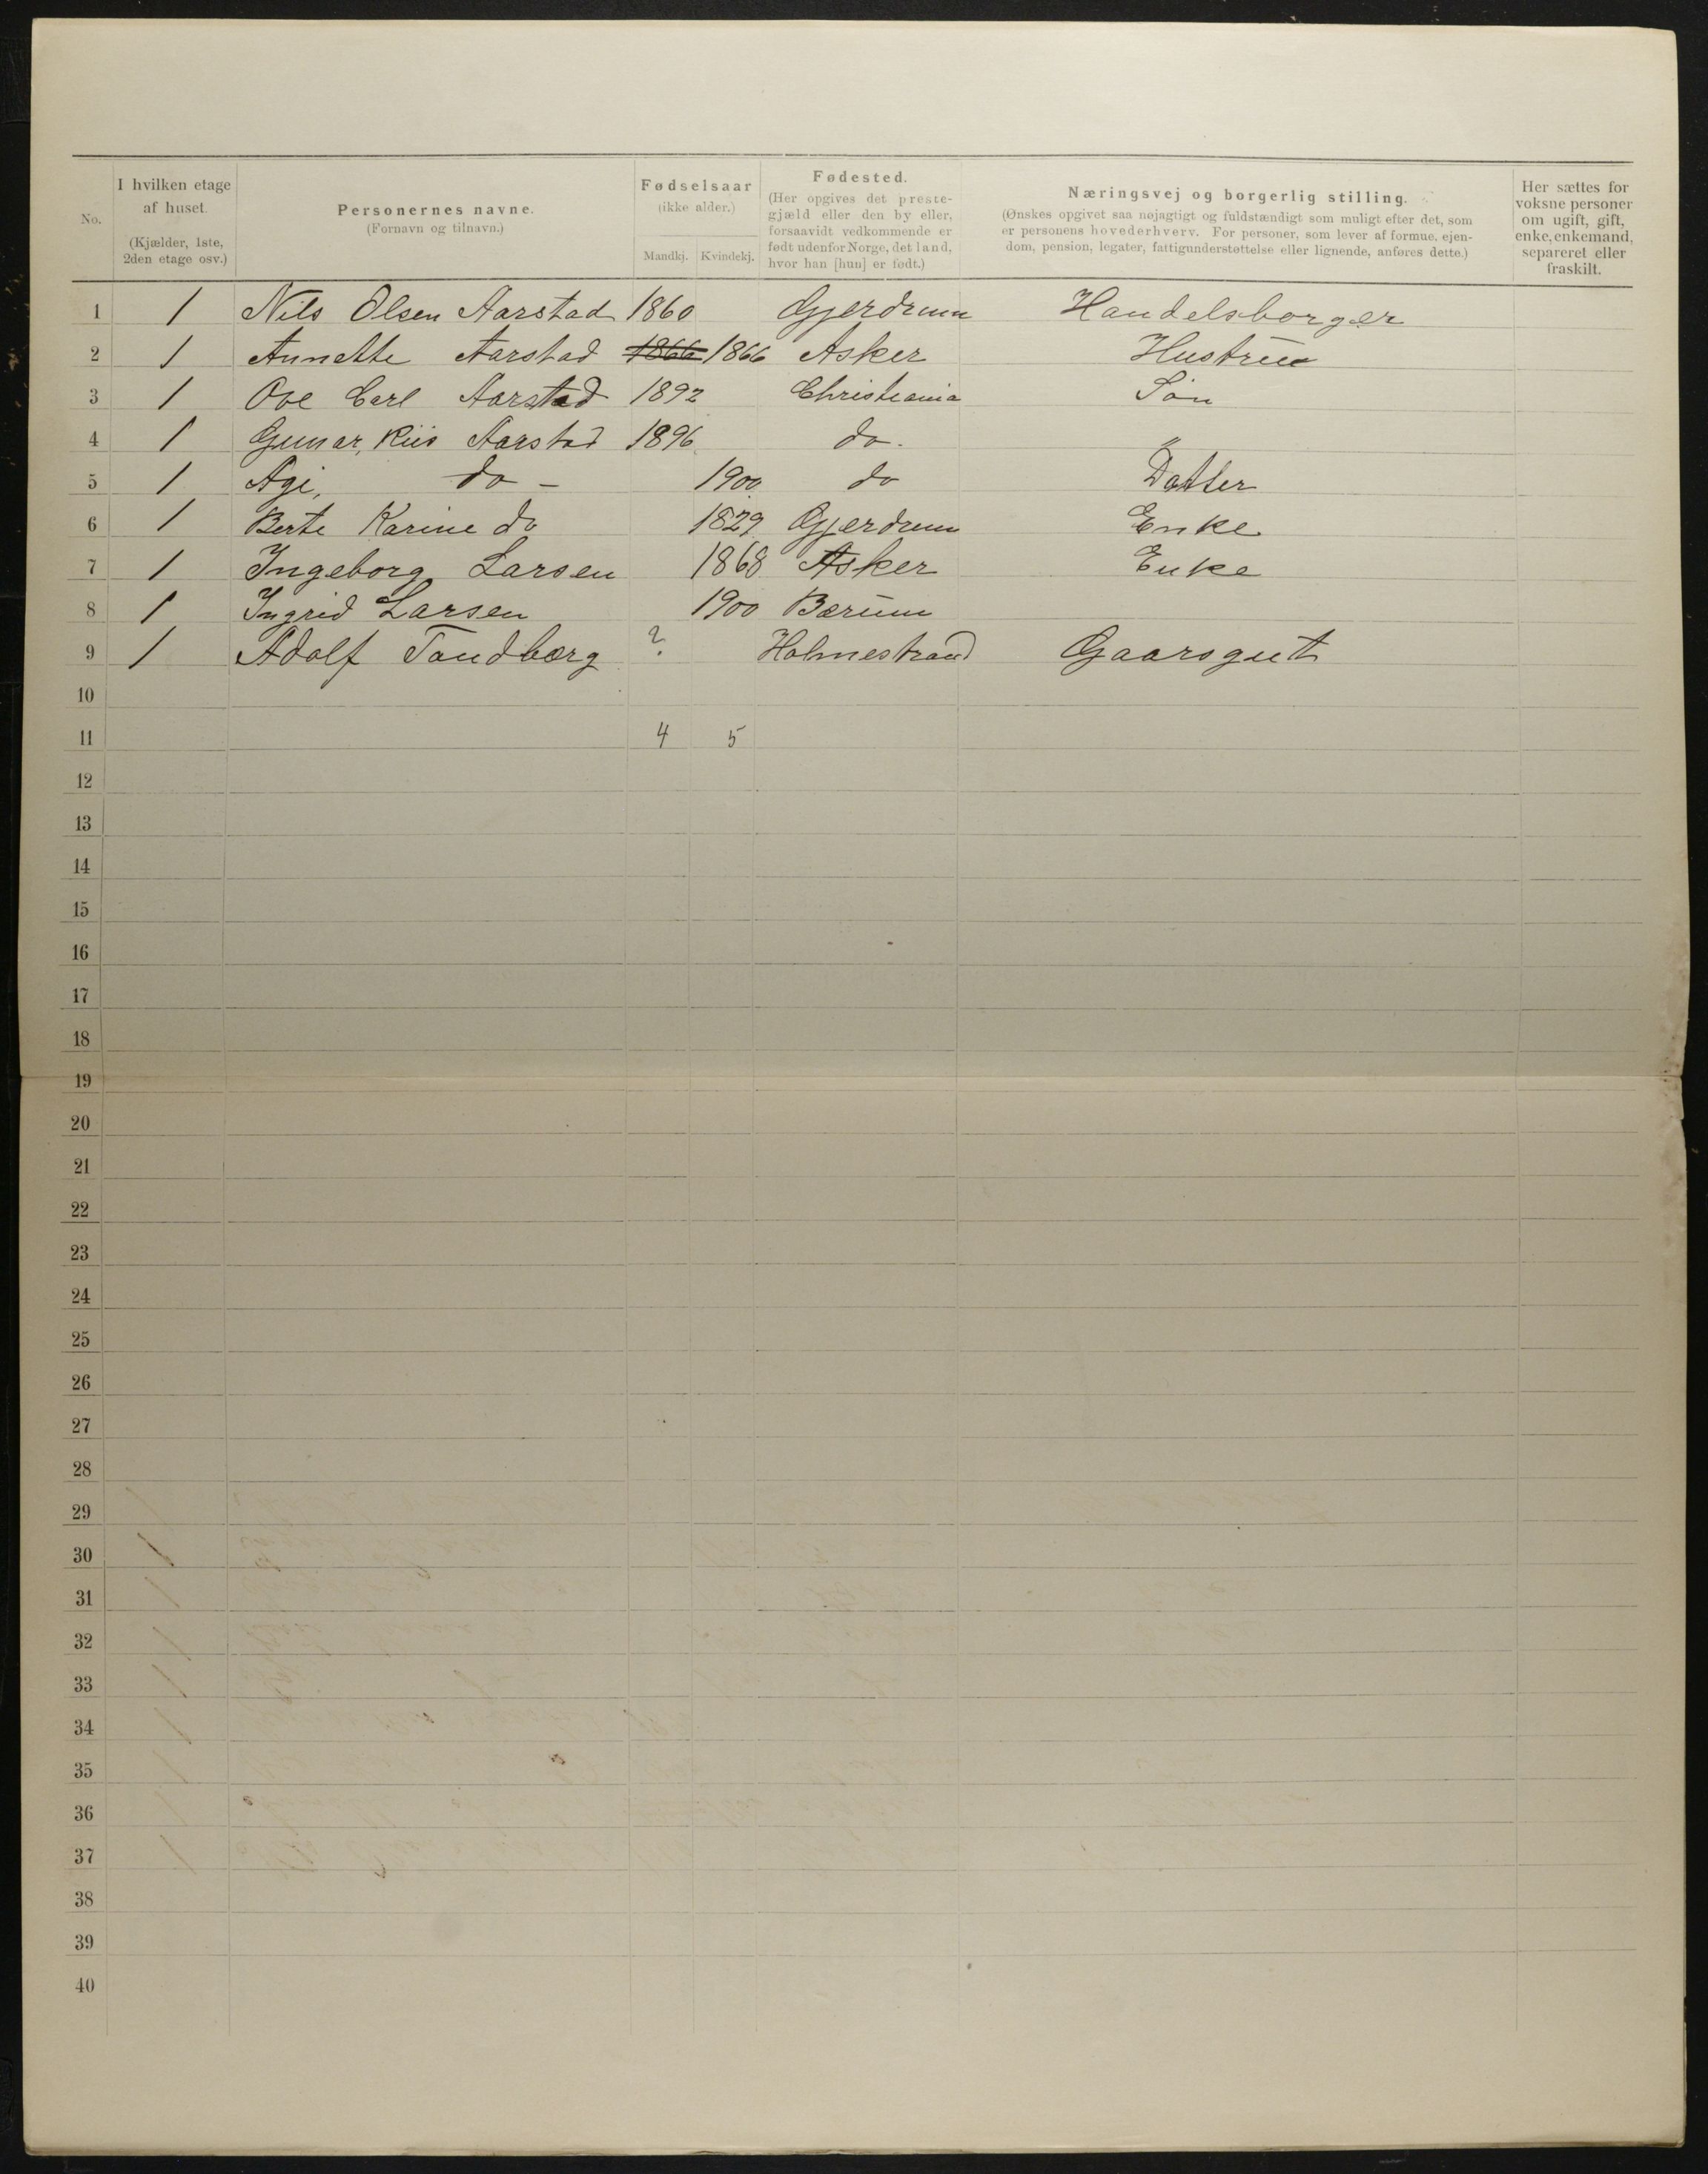 No.
I hvilken etage af huset. (Kjælder, 1ste, 2den etage osv.)
Personernes navne. (Fornavn og tilnavn.)
Fødselsaar (ikke alder.)
Mandkj. Kvindekj.
Fødested. (Her opgives det prestegjæld eller den by eller, forsaavidt vedkommende er født udenfor Norge, det land, hvor han [hun] er født.)
Næringsvej og borgerlig stilling. (Ønskes opgivet saa nøjagtigt og fuldstændigt som muligt efter det, som er personens hovederhverv. For personer, som lever af formue, ejendom, pension, legater, fattigunderstøttelse eller lignende, anføres dette.)
Her sættes for voksne personer om ugift, gift, enke, enkemand, separeret eller fraskilt.
1 1 Nils Olsen Aarstad 1860 Gjerdrum Handelsborger
2 1 Annette Aarstad 1866 1866 Asker Hustrue
3 1 Ove Carl Aarstad 1892 Christiania Søn
4 1 Gunnar, Riis Aarstad 1896 do. „
5 1 Agi, do - 1900 do Datter
6 1 Berte Karine do 1829 Gjerdrum Enke
7 1 Ingeborg Larsen 1868 Asker Enke
8 1 Ingrid Larsen 1900 Bærum
9 1 Adolf Tandberg ? Holmestrand Gaarsgut
10
11 4 5
12
13
14
15
16
17
18
19
20
21
22
23
24
25
26
27
28
29
30
31
32
33
34
35
36
37
38
39
40